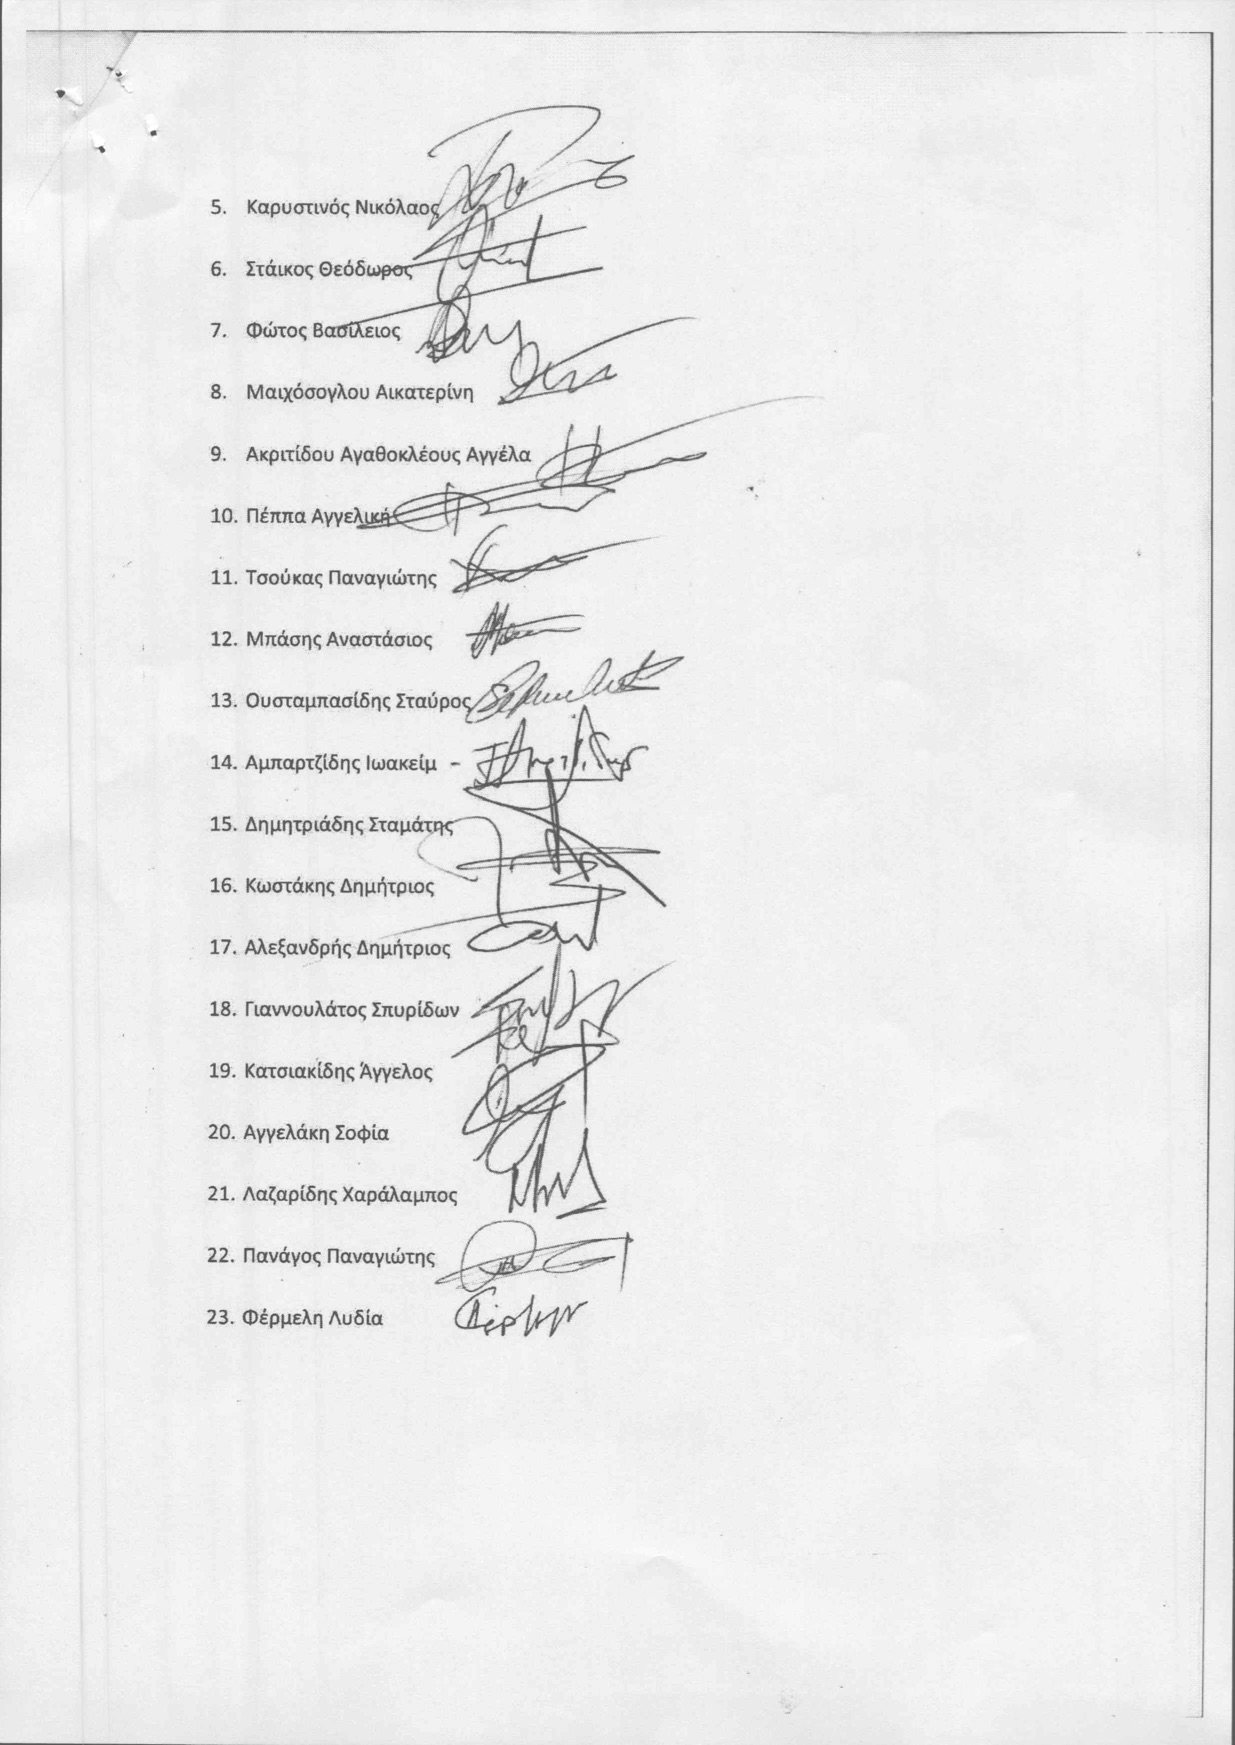 5. Καρυστινός Νικόλαος
6. Στάικος Θεόδωρος
7. Φώτος Βασίλειος
8. Μαιχόσογλου Αικατερίνη
9. Ακριτίδου Αγαθοκλέους Αγγέλα
10. Πέππα Αγγελική
11. Τσούκας Παναγιώτης
12. Μπάσης Αναστάσιος
13. Ουσταμπασίδης Σταύρος
14. Αμπαρτζίδης Ιωακείμ -
15. Δημητριάδης Σταμάτης
16. Κωστάκης Δημήτριος
17. Αλεξανδρής Δημήτριος
18. Γιαννουλάτος Σπυρίδων
19. Κατσιακίδης Άγγελος
20. Αγγελάκη Σοφία
21. Λαζαρίδης Χαράλαμπος
22. Πανάγος Παναγιώτης
23. Φέρμελη Λυδία